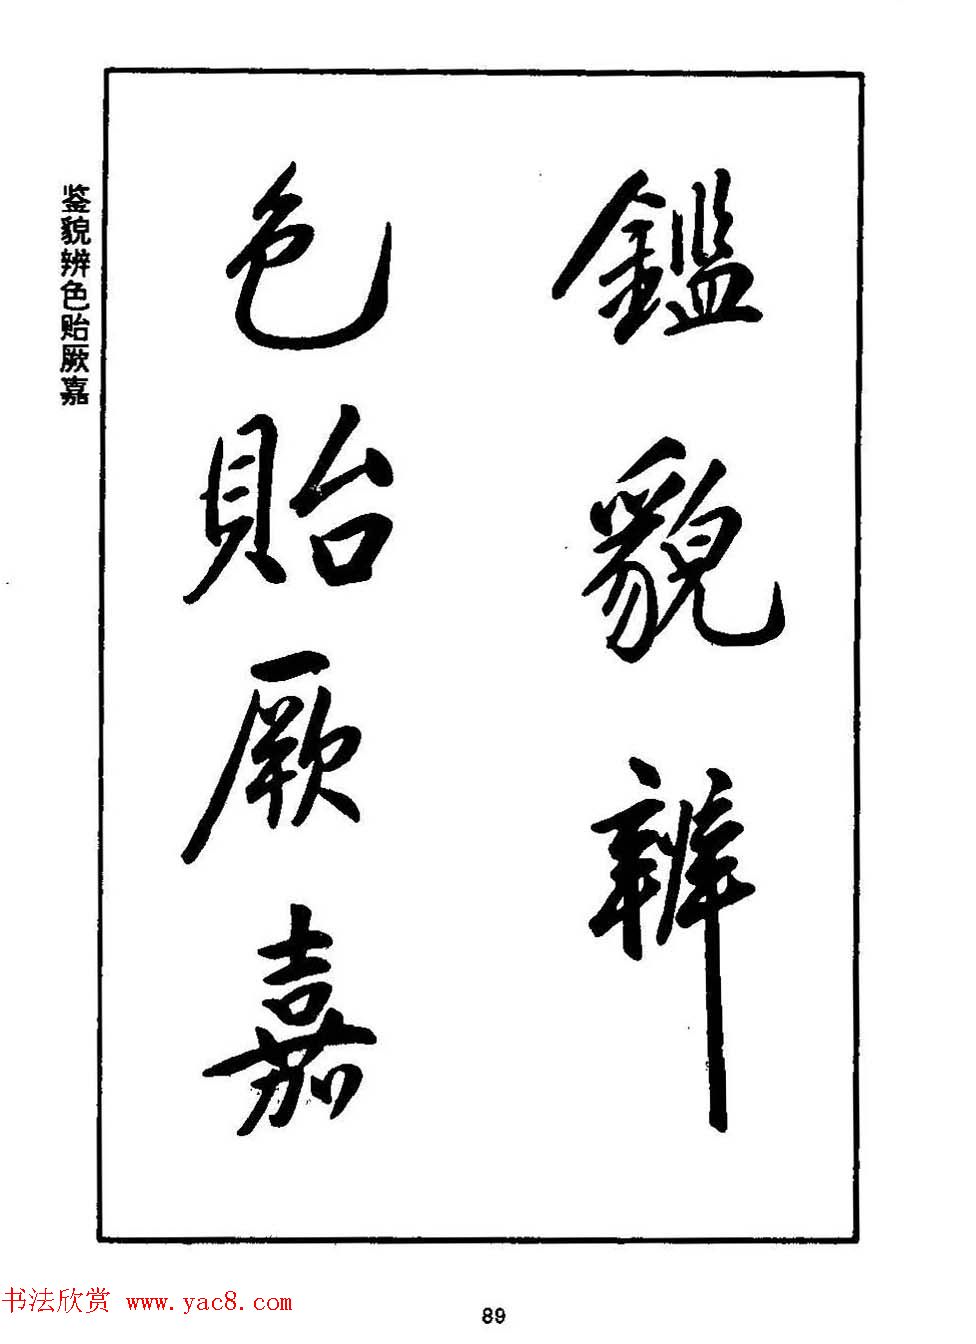 鑑貌辨
色貽厥嘉
鉴貌辨色贻厥嘉
书法欣赏 www.yac8.com
89